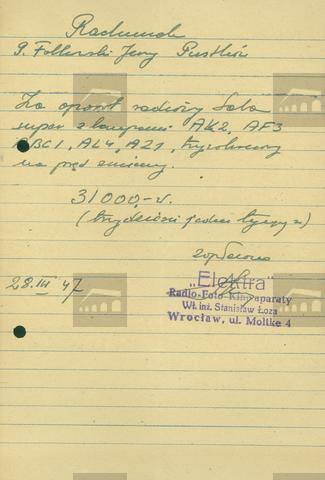 Rachunek
P. Folterski Jerzy Pustków
Za aparat radiowy Saba
super z lampami AK2, AF3
ABC1, AL4, AZ1, trzyobwodowy
na prąd zmienny.
31000,- zł.
(trzydzieści jeden tysięcy zł)
zapłacono
28.III 47
„Elektra"
Radio-Foto-Kinoaparaty
Wł. inż. Stanisław Łoza
Wrocław, ul. Moltke 4